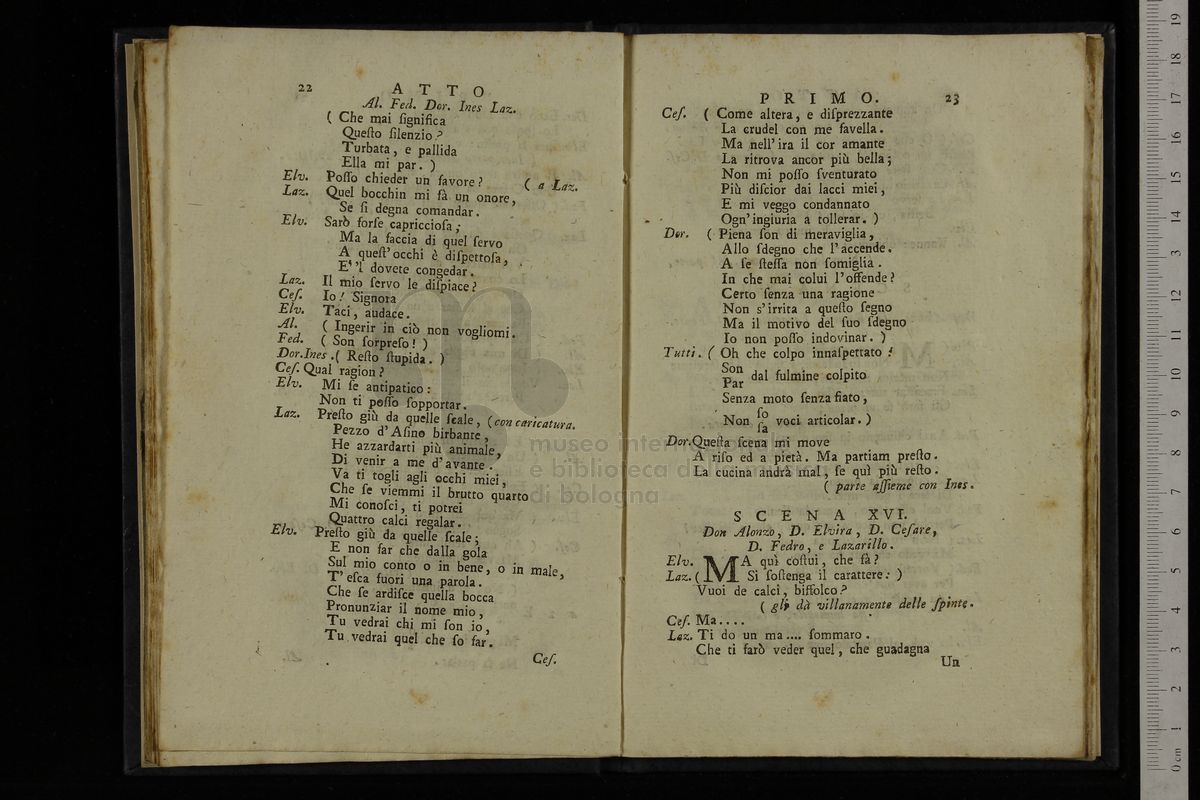 22 ATTO
Al. Fed. Dor. Ines Laz.
( Che mai ſignifica
Queſto ſilenzio?
Turbata, e pallida
Ella mi par. )
Elv. Poſſo chieder un favore? ( a Laz.
Laz. Quel bocchin mi fà un onore,
Se ſi degna comandar.
Elv. Sarò forſe capriccioſa;
Ma la faccia di quel ſervo
A queſt'occhi è diſpettoſa,
E 'l dovete congedar.
Laz. Il mio ſervo le diſpiace?
Ceſ. Io! Signora
Elv. Taci, audace.
Al. ( Ingerir in ciò non vogliomi.
Fed. ( Son ſorpreſo! )
Dor.Ines.( Reſto ſtupida. )
Ceſ. Qual ragion?
Elv. Mi ſe antipatico:
Non ti poſſo ſopportar.
Laz. Preſto giù da quelle ſcale, (con caricatura.
Pezzo d'Aſino birbante,
He azzardarti più animale,
Di venir a me d'avante.
Va ti togli agli occhi miei,
Che ſe viemmi il brutto quarto
Mi conoſci, ti potrei
Quattro calci regalar.
Elv. Preſto giù da quelle ſcale;
E non far che dalla gola
Sul mio conto o in bene, o in male,
T'eſca fuori una parola.
Che ſe ardiſce quella bocca
Pronunziar il nome mio,
Tu vedrai chi mi ſon io,
Tu vedrai quel che ſo far.
Ceſ.
PRIMO. 23
Ceſ. ( Come altera, e diſprezzante
La crudel con me favella.
Ma nell'ira il cor amante
La ritrova ancor più bella;
Non mi poſſo ſventurato
Più diſcior dai lacci miei,
E mi veggo condannato
Ogn'ingiuria a tollerar. )
Dor. ( Piena ſon di meraviglia,
Allo ſdegno che l'accende.
A ſe ſteſſa non ſomiglia.
In che mai colui l'offende?
Certo ſenza una ragione
Non s'irrita a queſto ſegno
Ma il motivo del ſuo ſdegno
Io non poſſo indovinar. )
Tutti. ( Oh che colpo innaſpettato!
Son
Par dal fulmine colpito
Senza moto ſenza fiato,
Non ſo
ſa voci articolar. )
Dor. Queſta ſcena mi move
A riſo ed a pietà. Ma partiam preſto.
La cucina andrà mal, ſe quì più reſto.
( parte aſſieme con Ines.
SCENA XVI.
Don Alonzo, D. Elvira, D. Ceſare,
D. Fedro, e Lazarillo.
Elv. MA quì coſtui, che fà?
Laz. ( Si ſoſtenga il carattere: )
Vuoi de calci, biffolco?
( gli dà villanamente delle ſpinte.
Ceſ. Ma....
Laz. Ti do un ma.... ſommaro.
Che ti farò veder quel, che guadagna
Un
museo inter
e biblioteca d
di bologna
0 cm 1 2 3 4 5 6 7 8 9 10 11 12 13 14 15 16 17 18 19